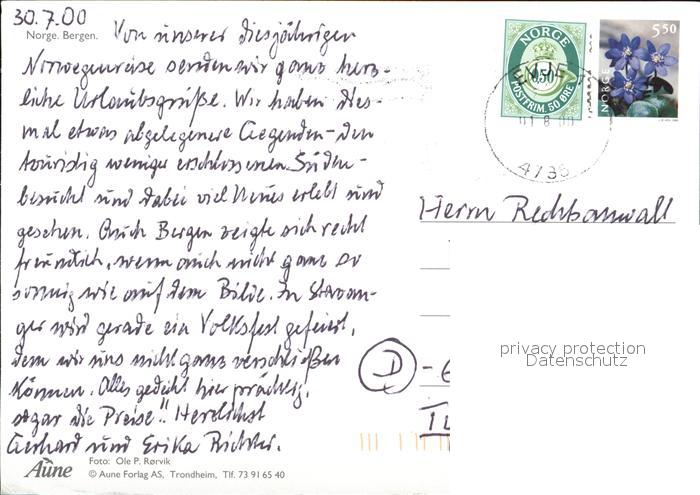 30.7.00
Norge. Bergen.
Von unserer diesjährigen
Norwegenreise senden wir ganz herz-
liche Urlaubsgrüße. Wir haben dies-
mal etwas abgelegenere Gegenden - den
touristig weniger erschlossenen Süden -
besucht und dabei viel Neues erlebt und
gesehen. Auch Bergen zeigte sich recht
freundlich, wenn auch nicht ganz so
sonnig wie auf dem Bilde. In Stavan-
ger wird gerade ein Volksfest gefeiert,
dem wir uns nicht ganz verschließen
können. Alles gedeiht hier prächtig,
sogar die Preise!! Herzlichst
Gerhard und Erika Richter.
Aune
Foto: Ole P. Rørvik
© Aune Forlag AS, Trondheim, Tlf. 73 91 65 40
NORGE
POSTFRIM. 50 ØRE
5.50
NORGE
4735
Herrn Rechtsanwalt
privacy protection
Datenschutz
D - 6